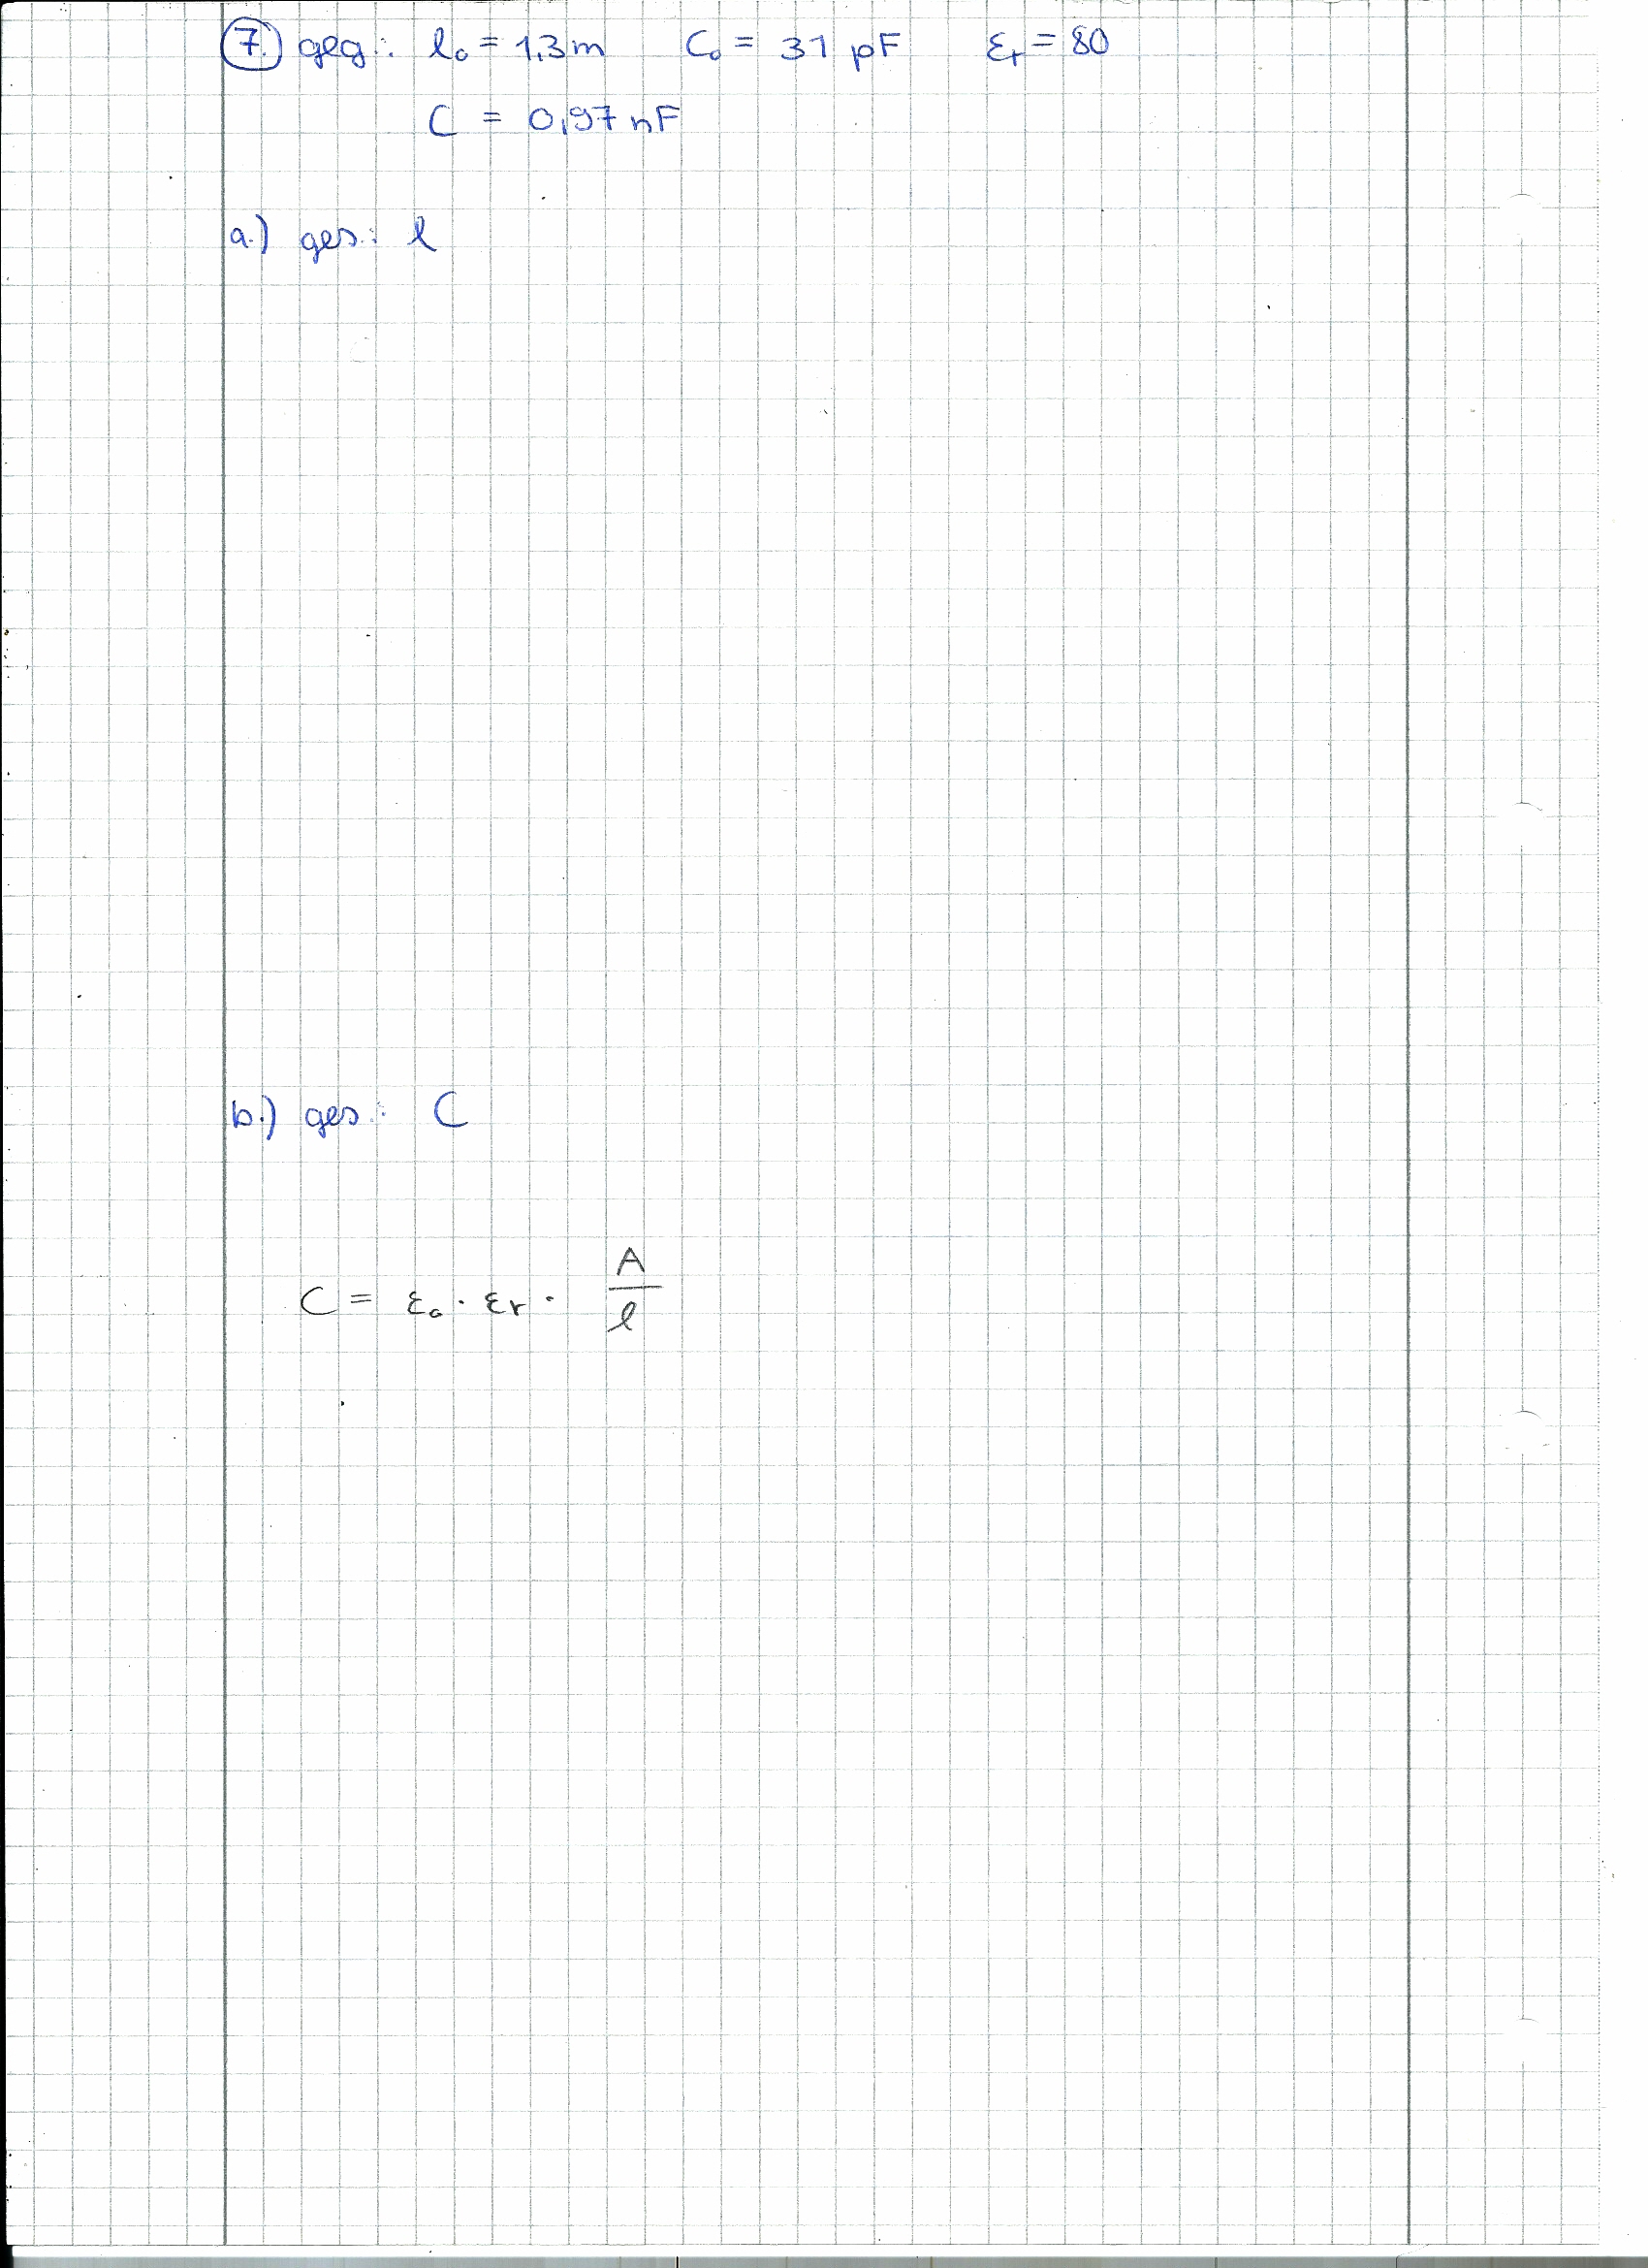 7.) geg.: l₀ = 1,3 m C₀ = 31 pF εᵣ = 80
C = 0,97 nF
a.) ges.: l
b.) ges.: C
C = ε₀ · εr · A/l